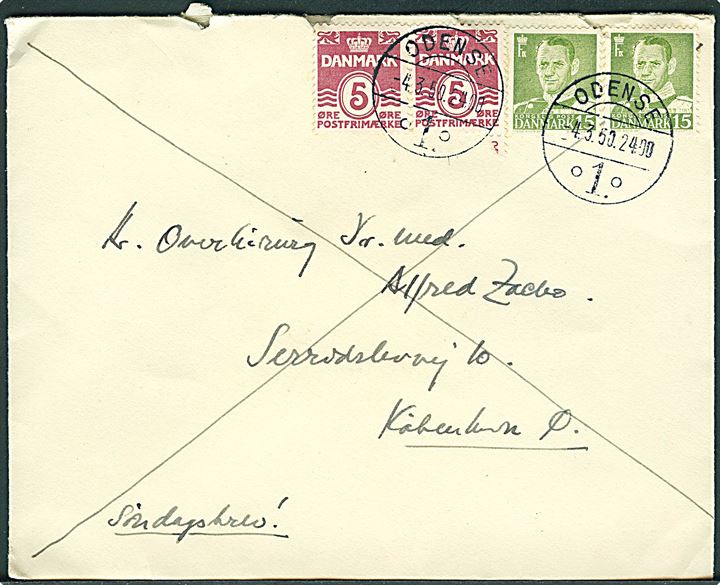 DANMARK
5
ØRE
ØRE
POSTFRIMÆRKE
DANMARK
5
ØRE
ØRE
POSTFRIMÆRKE
ODENSE
-4.3.50.2400
1.
FR
KONGELIG POST
DANMARK 15
FR
DANMARK 15
ODENSE
-4.3.50.2400
1.
Hr. Overkirurg Dr. med.
Alfred Zacho.
Serridslevvej 10.
København Ø.
Søndagsbrev!